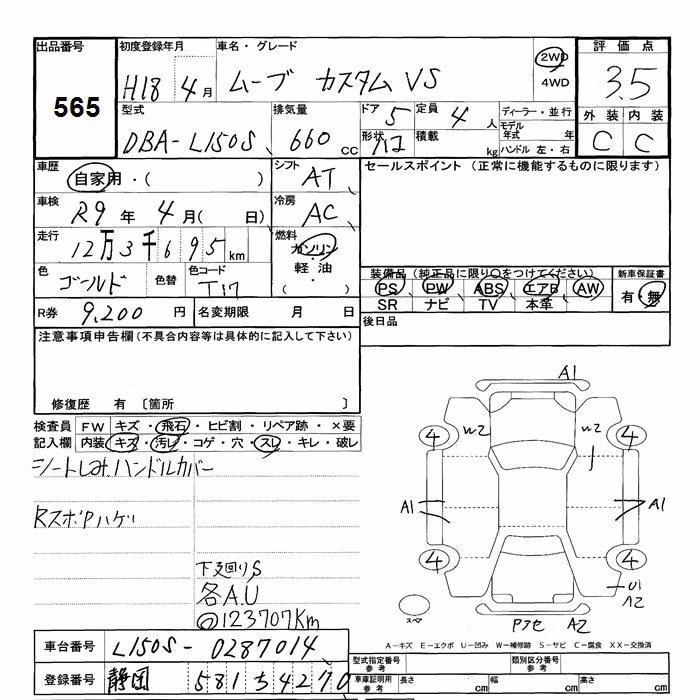 出品番号
565
初度登録年月
H18 4月
車名・グレード
ムーブ カスタム VS
2WD
4WD
評価点
3.5
外装 内装
C C
型式
DBA-L150S
排気量
660 cc
ドア 5
形状 ハコ
定員 4 人
積載 kg
ディーラー・並行
モデル年式 年
ハンドル 左・右
車歴
自家用・( )
シフト
AT
車検
R9 年 4 月( 日)
冷房
AC
走行
12万3千695 km
燃料
ガソリン
軽油
( )
色
ゴールド
色替
色コード
T17
R券 9,200 円
名変期限 月 日
セールスポイント (正常に機能するものに限ります)
装備品(純正品に限り○をつけてください)
PS PW ABS エアB AW
SR ナビ TV 本革
新車保証書
有・無
後日品
注意事項申告欄(不具合内容等は具体的に記入して下さい)
修復歴 有 〔箇所 〕
検査員 FW キズ・飛石・ヒビ割・リペア跡・×要
記入欄 内装 キズ・汚レ・コゲ・穴・スレ・キレ・破レ
シートしみ、ハンドルカバー
RスポPハゲ
下廻りS
各A.U
◎123707Km
A1
W2 W2
4 4
A1 A1
4 4
U1
A2
スペア
Pアセ A2
A-キズ E-エクボ U-凹み W-補修跡 S-サビ C-腐食 XX-交換済
車台番号 L150S-0287014
登録番号 静岡 581 ち4270
型式指定番号
参考
類別区分番号
参考
車庫証明用
参考
長さ cm 幅 cm 高さ cm